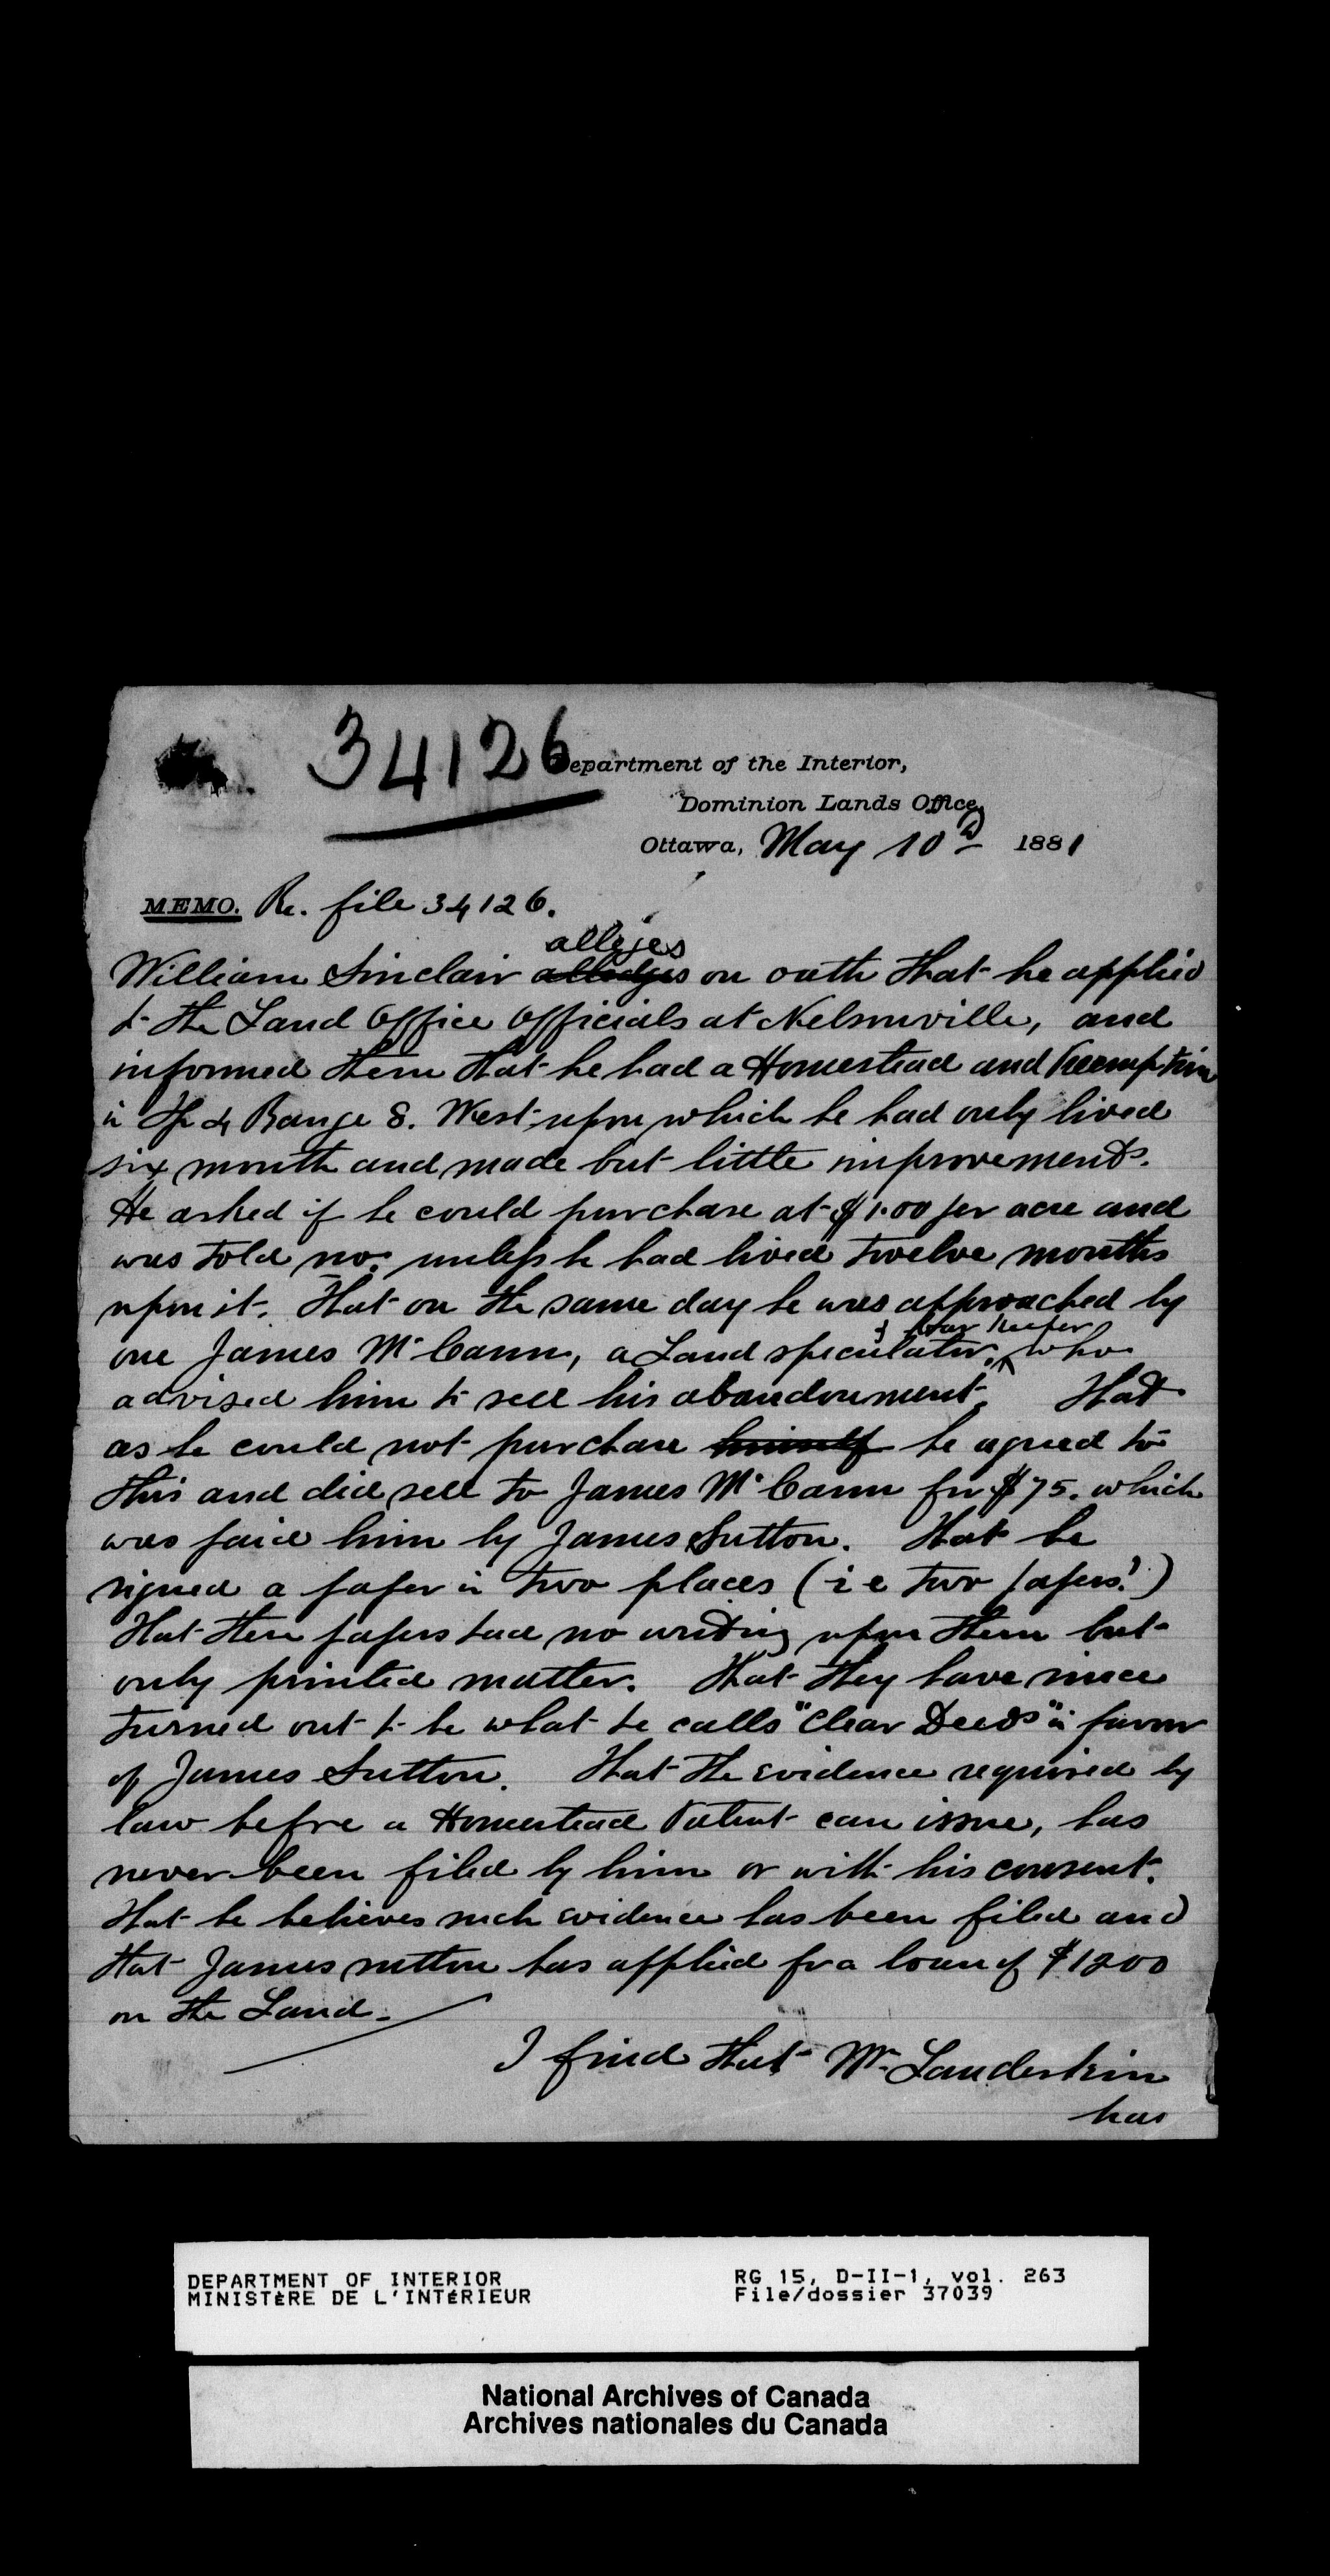 34126
Department of the Interior,
Dominion Lands Office,
Ottawa, May 10th 1881
MEMO. Re. file 34126.
alleges
William Sinclair alledges on oath that he applied
to the Land Office Officials at Nelsonville, and
informed them that he had a Homestead and Preemption
in Tp 4 Range 8. West upon which he had only lived
six month and made but little improvements.
He asked if he could purchase at $1.00 per acre and
was told no: unless he had lived twelve months
upon it. That on the same day he was approached by
& bar keeper
one James McCann, a Land speculator, who
advised him to sell his abandonment. That
as he could not purchase himself he agreed to
this and did sell to James McCann for $75. which
was paid him by James Sutton. That he
signed a paper in two places (i e two papers?)
That these papers had no writing upon them but
only printed matter. That they have since
turned out to be what he calls "Clear Deeds" in favor
of James Sutton. That the evidence required by
law before a Homestead Patent can issue, has
never been filed by him or with his consent.
That he believes such evidence has been filed and
that James Sutton has applied for a loan of $1200
on the Land.
I find that Mr. Landerkin
has
DEPARTMENT OF INTERIOR
MINISTÈRE DE L'INTÉRIEUR
RG 15, D-II-1, vol. 263
File/dossier 37039
National Archives of Canada
Archives nationales du Canada